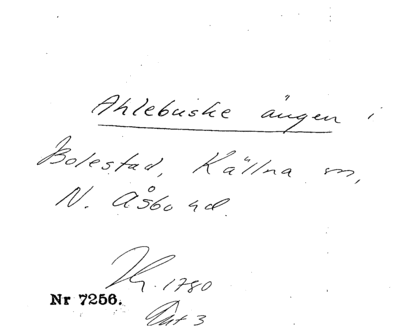 Ahlebuske ängen i
Bolestad, Källna sn,
N. Åsbo hd.
1780
Nr 7256.
3